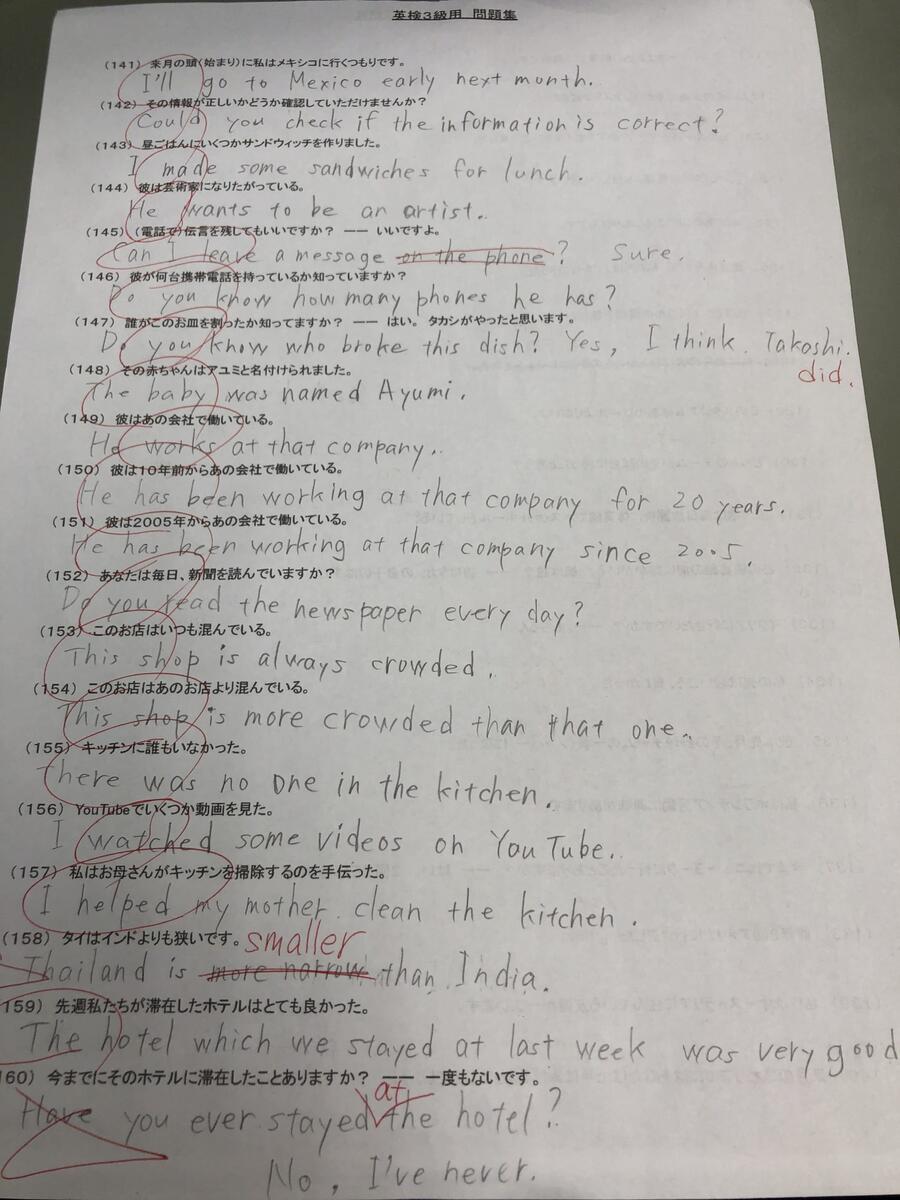 英検3級用 問題集
(141) 来月の頭(始まり)に私はメキシコに行くつもりです。
I'll go to Mexico early next month.
(142) その情報が正しいかどうか確認していただけませんか？
Could you check if the information is correct?
(143) 昼ごはんにいくつかサンドウィッチを作りました。
I made some sandwiches for lunch.
(144) 彼は芸術家になりたがっている。
He wants to be an artist.
(145) (電話で)伝言を残してもいいですか？ ―― いいですよ。
Can I leave a message on the phone? Sure.
(146) 彼が何台携帯電話を持っているか知っていますか？
Do you know how many phones he has?
(147) 誰がこのお皿を割ったか知ってますか？ ―― はい。タカシがやったと思います。
Do you know who broke this dish? Yes, I think Takashi.
did.
(148) その赤ちゃんはアユミと名付けられました。
The baby was named Ayumi.
(149) 彼はあの会社で働いている。
He works at that company.
(150) 彼は10年前からあの会社で働いている。
He has been working at that company for 20 years.
(151) 彼は2005年からあの会社で働いている。
He has been working at that company since 2005.
(152) あなたは毎日、新聞を読んでいますか？
Do you read the newspaper every day?
(153) このお店はいつも混んでいる。
This shop is always crowded.
(154) このお店はあのお店より混んでいる。
This shop is more crowded than that one.
(155) キッチンに誰もいなかった。
There was no one in the kitchen.
(156) YouTubeでいくつか動画を見た。
I watched some videos on YouTube.
(157) 私はお母さんがキッチンを掃除するのを手伝った。
I helped my mother clean the kitchen.
(158) タイはインドよりも狭いです。 smaller
Thailand is more narrow than India.
159) 先週私たちが滞在したホテルはとても良かった。
The hotel which we stayed at last week was very good
60) 今までにそのホテルに滞在したことありますか？ ―― 一度もないです。
at
Have you ever stayed the hotel?
No, I've never.